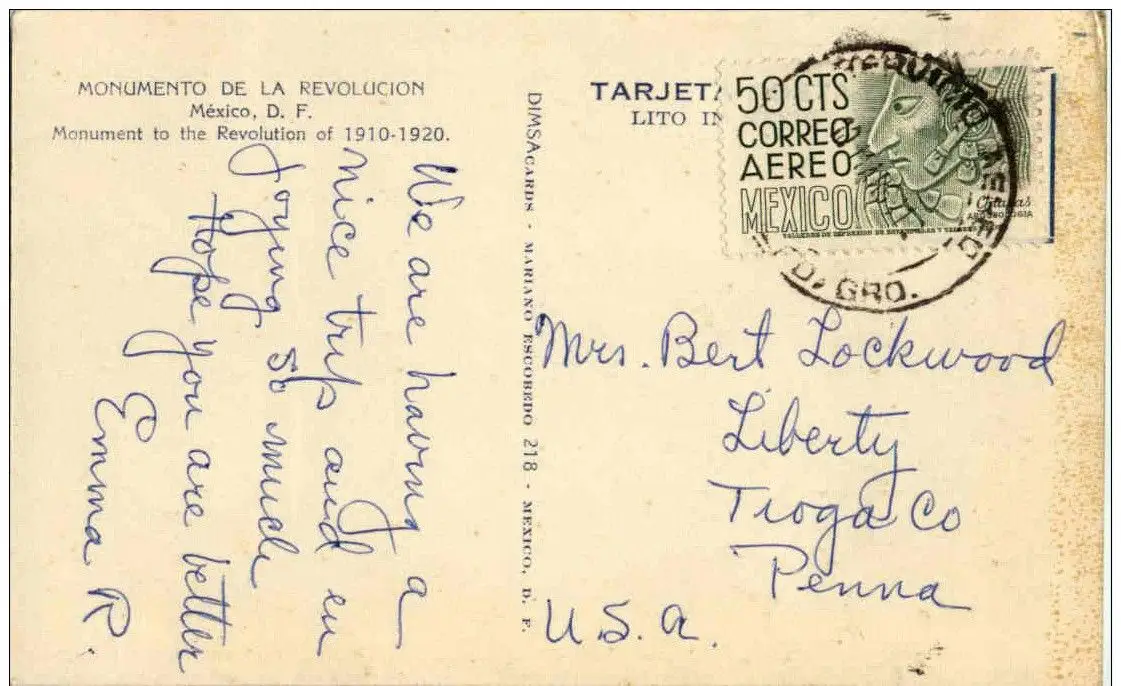 MONUMENTO DE LA REVOLUCION
México, D. F.
Monument to the Revolution of 1910-1920.
We are having a
nice trip and en
joying so much
Hope you are better
Emma R.
DIMSA CARDS - MARIANO ESCOBEDO 218 - MEXICO, D. F.
TARJETA
LITO IN
50 CTS
CORREO
AEREO
MEXICO
Chiapas
ARQUEOLOGIA
SERVICIO AEREO
D, GRO.
Mrs. Bert Lockwood
Liberty
Tioga Co
Penna
U.S.A.